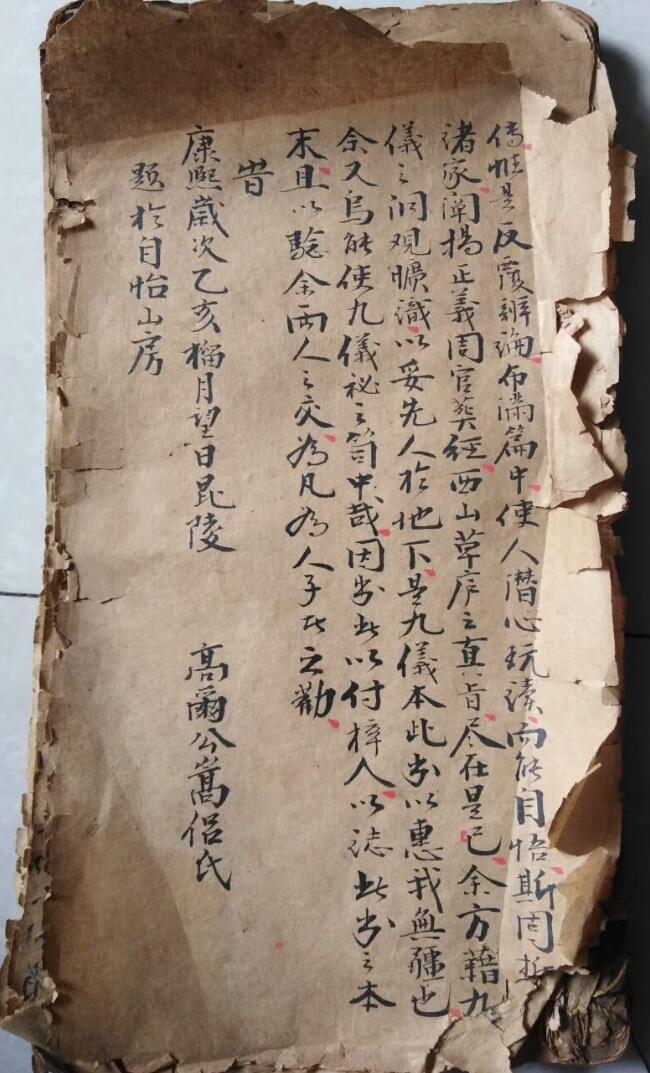 傳惟是反覆辨論布滿篇中使人潛心玩讀而能自悟斯固折
諸家闡揚正義周官葬經西山草序之真旨尽在是已余方藉九
儀之洞观曠識以妥先人於地下是九儀本此书以惠我無疆也
余又烏能使九儀祕之笥中哉因书此以付梓人以誌此书之本
末且以驗余两人之交為凡為人子者之勸
旹
康熙歲次乙亥榴月望日毘陵 高爾公嵩侣氏
題於自怡山房